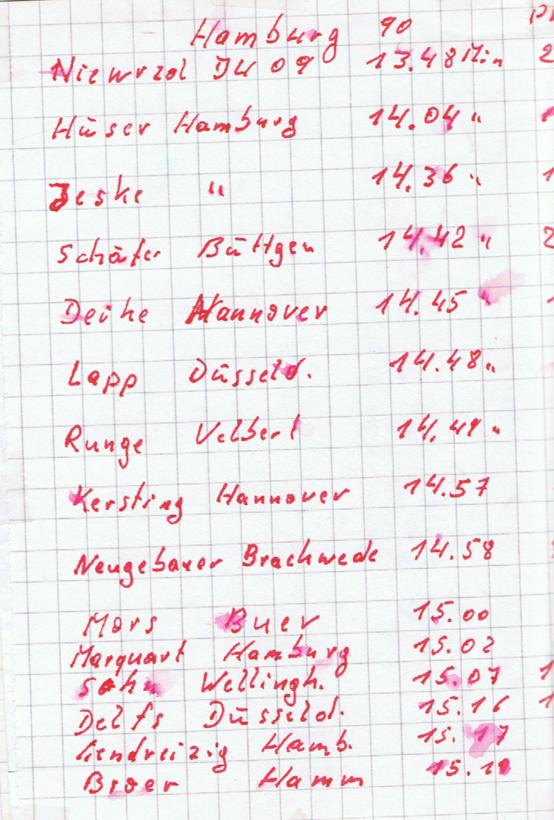 Hamburg 90
Niewrzol 13.48 Min
Hüser Hamburg 14.04 "
Jeske " 14.36 "
Schäfer Büttgen 14.42 "
Deike Hannover 14.45 "
Lapp Düsseld. 14.48 "
Runge Velbert 14.49 "
Kersting Hannover 14.57
Neugebauer Brachwede 14.58
Mors Buer 15.00
Marquart Hamburg 15.02
Sohn Wellingh. 15.07
Delfs Düsseld. 15.16
Hamb. 15.17
Hamm